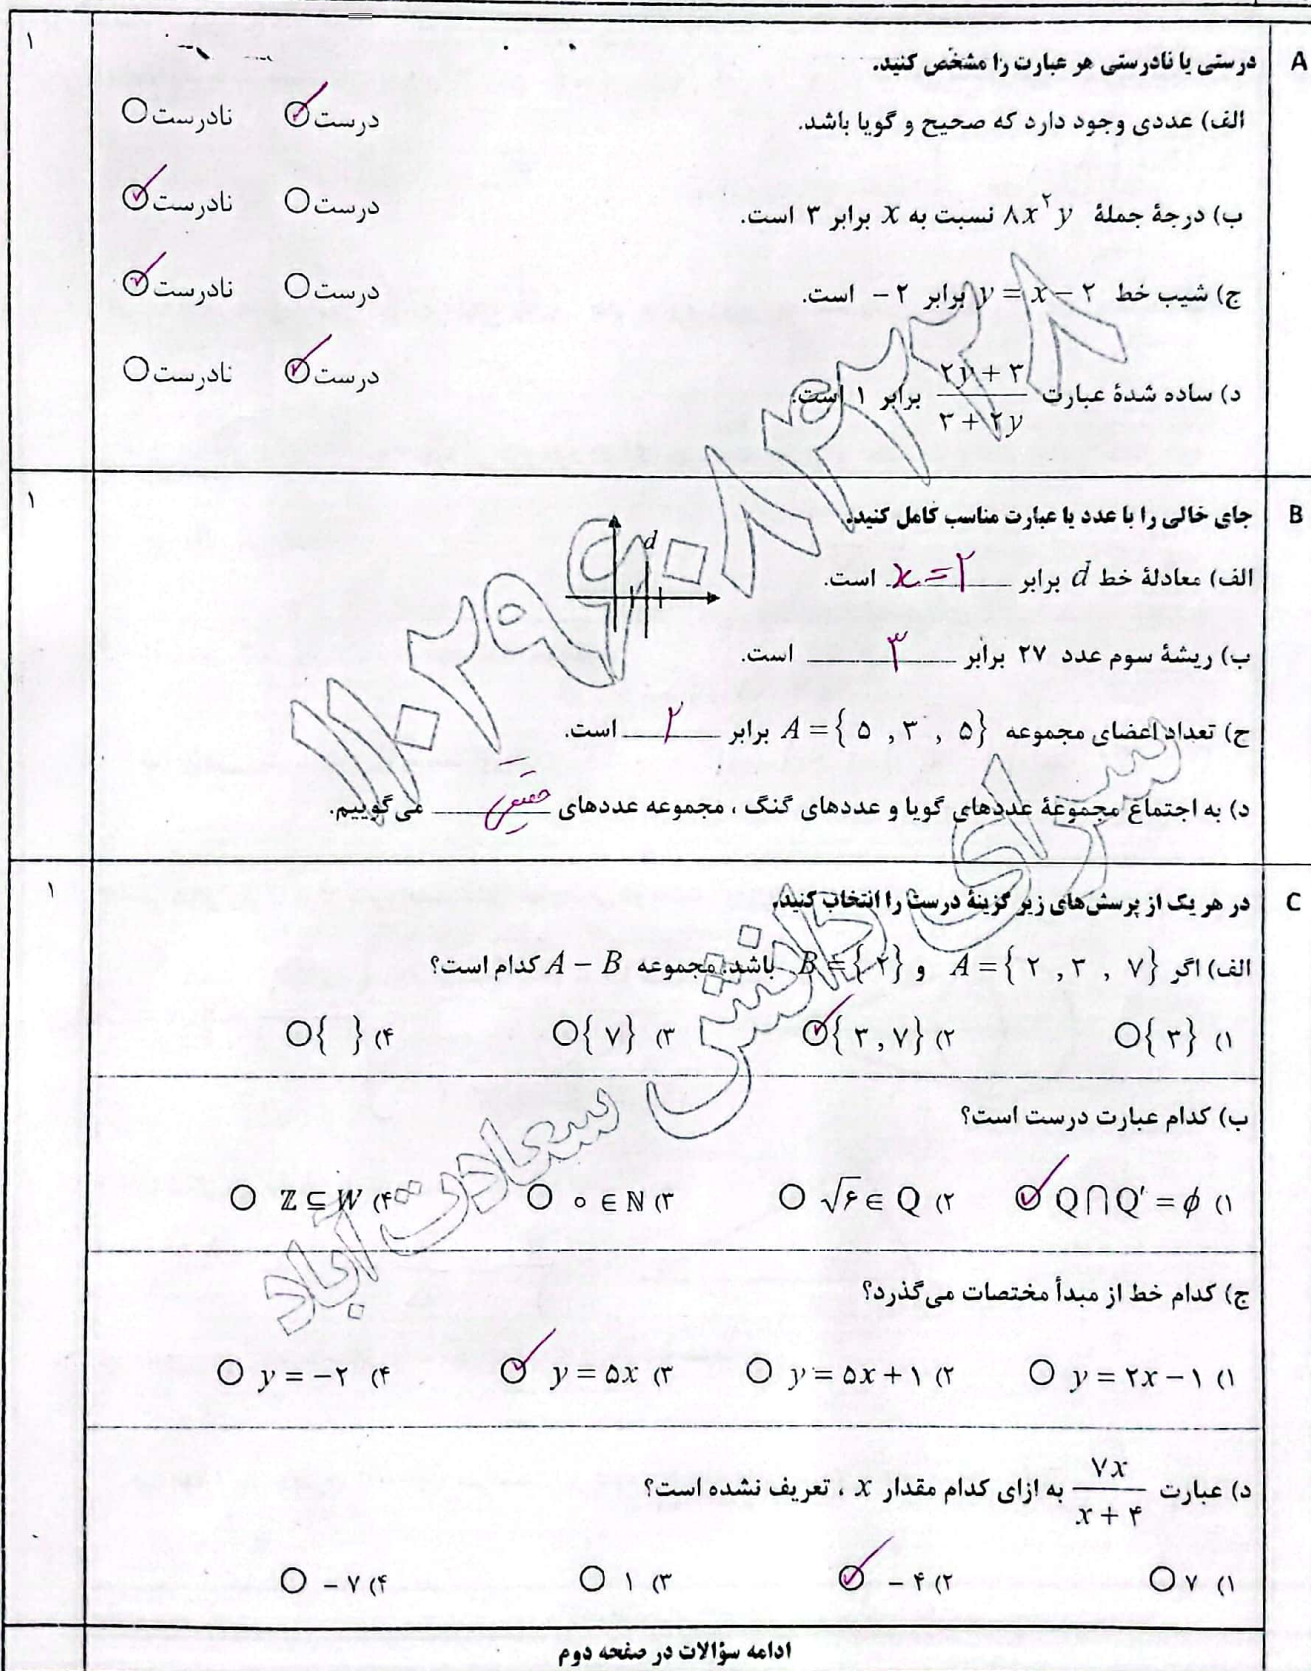 A درستی یا نادرستی هر عبارت را مشخّص کنید. ۱
الف) عددی وجود دارد که صحیح و گویا باشد. درست نادرست
ب) درجهٔ جملهٔ ۸x²y نسبت به x برابر ۳ است. درست نادرست
ج) شیب خط y = x − ۲ برابر ۲ − است. درست نادرست
د) ساده شدهٔ عبارت (۲y + ۳)/(۳ + ۲y) برابر ۱ است. درست نادرست
B جای خالی را با عدد یا عبارت مناسب کامل کنید. ۱
d
الف) معادلهٔ خط d برابر x = ۲ است.
ب) ریشهٔ سوم عدد ۲۷ برابر ۳ است.
ج) تعداد اعضای مجموعه A = { ۵ , ۳ , ۵ } برابر ۲ است.
د) به اجتماع مجموعهٔ عددهای گویا و عددهای گنگ ، مجموعه عددهای حقیقی می‌گوییم.
C در هر یک از پرسش‌های زیر گزینهٔ درست را انتخاب کنید. ۱
الف) اگر A = { ۲ , ۳ , ۷ } و B = { ۲ } باشد، مجموعه A − B کدام است؟
۱) { ۳ } ۲) { ۳ , ۷ } ۳) { ۷ } ۴) { }
ب) کدام عبارت درست است؟
۱) Q ∩ Q′ = ϕ ۲) √۶ ∈ Q ۳) ۰ ∈ ℕ ۴) ℤ ⊆ W
ج) کدام خط از مبدأ مختصات می‌گذرد؟
۱) y = ۲x − ۱ ۲) y = ۵x + ۱ ۳) y = ۵x ۴) y = −۲
د) عبارت ۷x/(x + ۴) به ازای کدام مقدار x ، تعریف نشده است؟
۱) ۷ ۲) ۴ − ۳) ۱ ۴) ۷ −
ادامه سؤالات در صفحه دوم
سرای دانش سعادت آباد